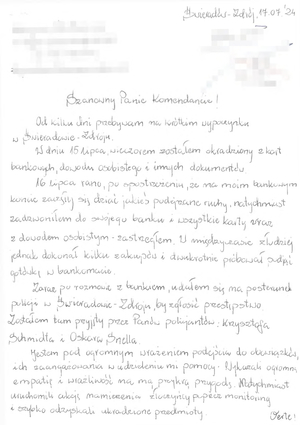 Świeradów-Zdrój, 17.07.'24
Szanowny Panie Komendancie!
Od kilku dni przebywam na krótkim wypoczynku
w Świeradowie-Zdroju.
W dniu 15 lipca, wieczorem zostałem okradziony z kart
bankowych, dowodu osobistego i innych dokumentów.
16 lipca rano, po spostrzeżeniu, że na moim bankowym
koncie zaczęły się dziać jakieś podejrzane ruchy, natychmiast
zadzwoniłem do swojego banku i wszystkie karty wraz
z dowodem osobistym - zastrzegłem. W międzyczasie złodziej
jednak dokonał kilku zakupów i dwukrotnie próbował podjąć
gotówkę w bankomacie.
Zaraz po rozmowie z bankiem, udałem się na posterunek
policji w Świeradowie-Zdroju, by zgłosić przestępstwo.
Zostałem tam przyjęty przez Panów policjantów: Krzysztofa
Schmidta i Oskara Snella.
Jestem pod ogromnym wrażeniem podejścia do obowiązków,
ich zaangażowania w udzieleniu mi pomocy. Wykazali ogromną
empatię i wrażliwość na mą przykrą przygodę. Natychmiast
uruchomili akcję namierzenia złoczyńcy poprzez monitoring
i szybko odzyskali ukradzione przedmioty.